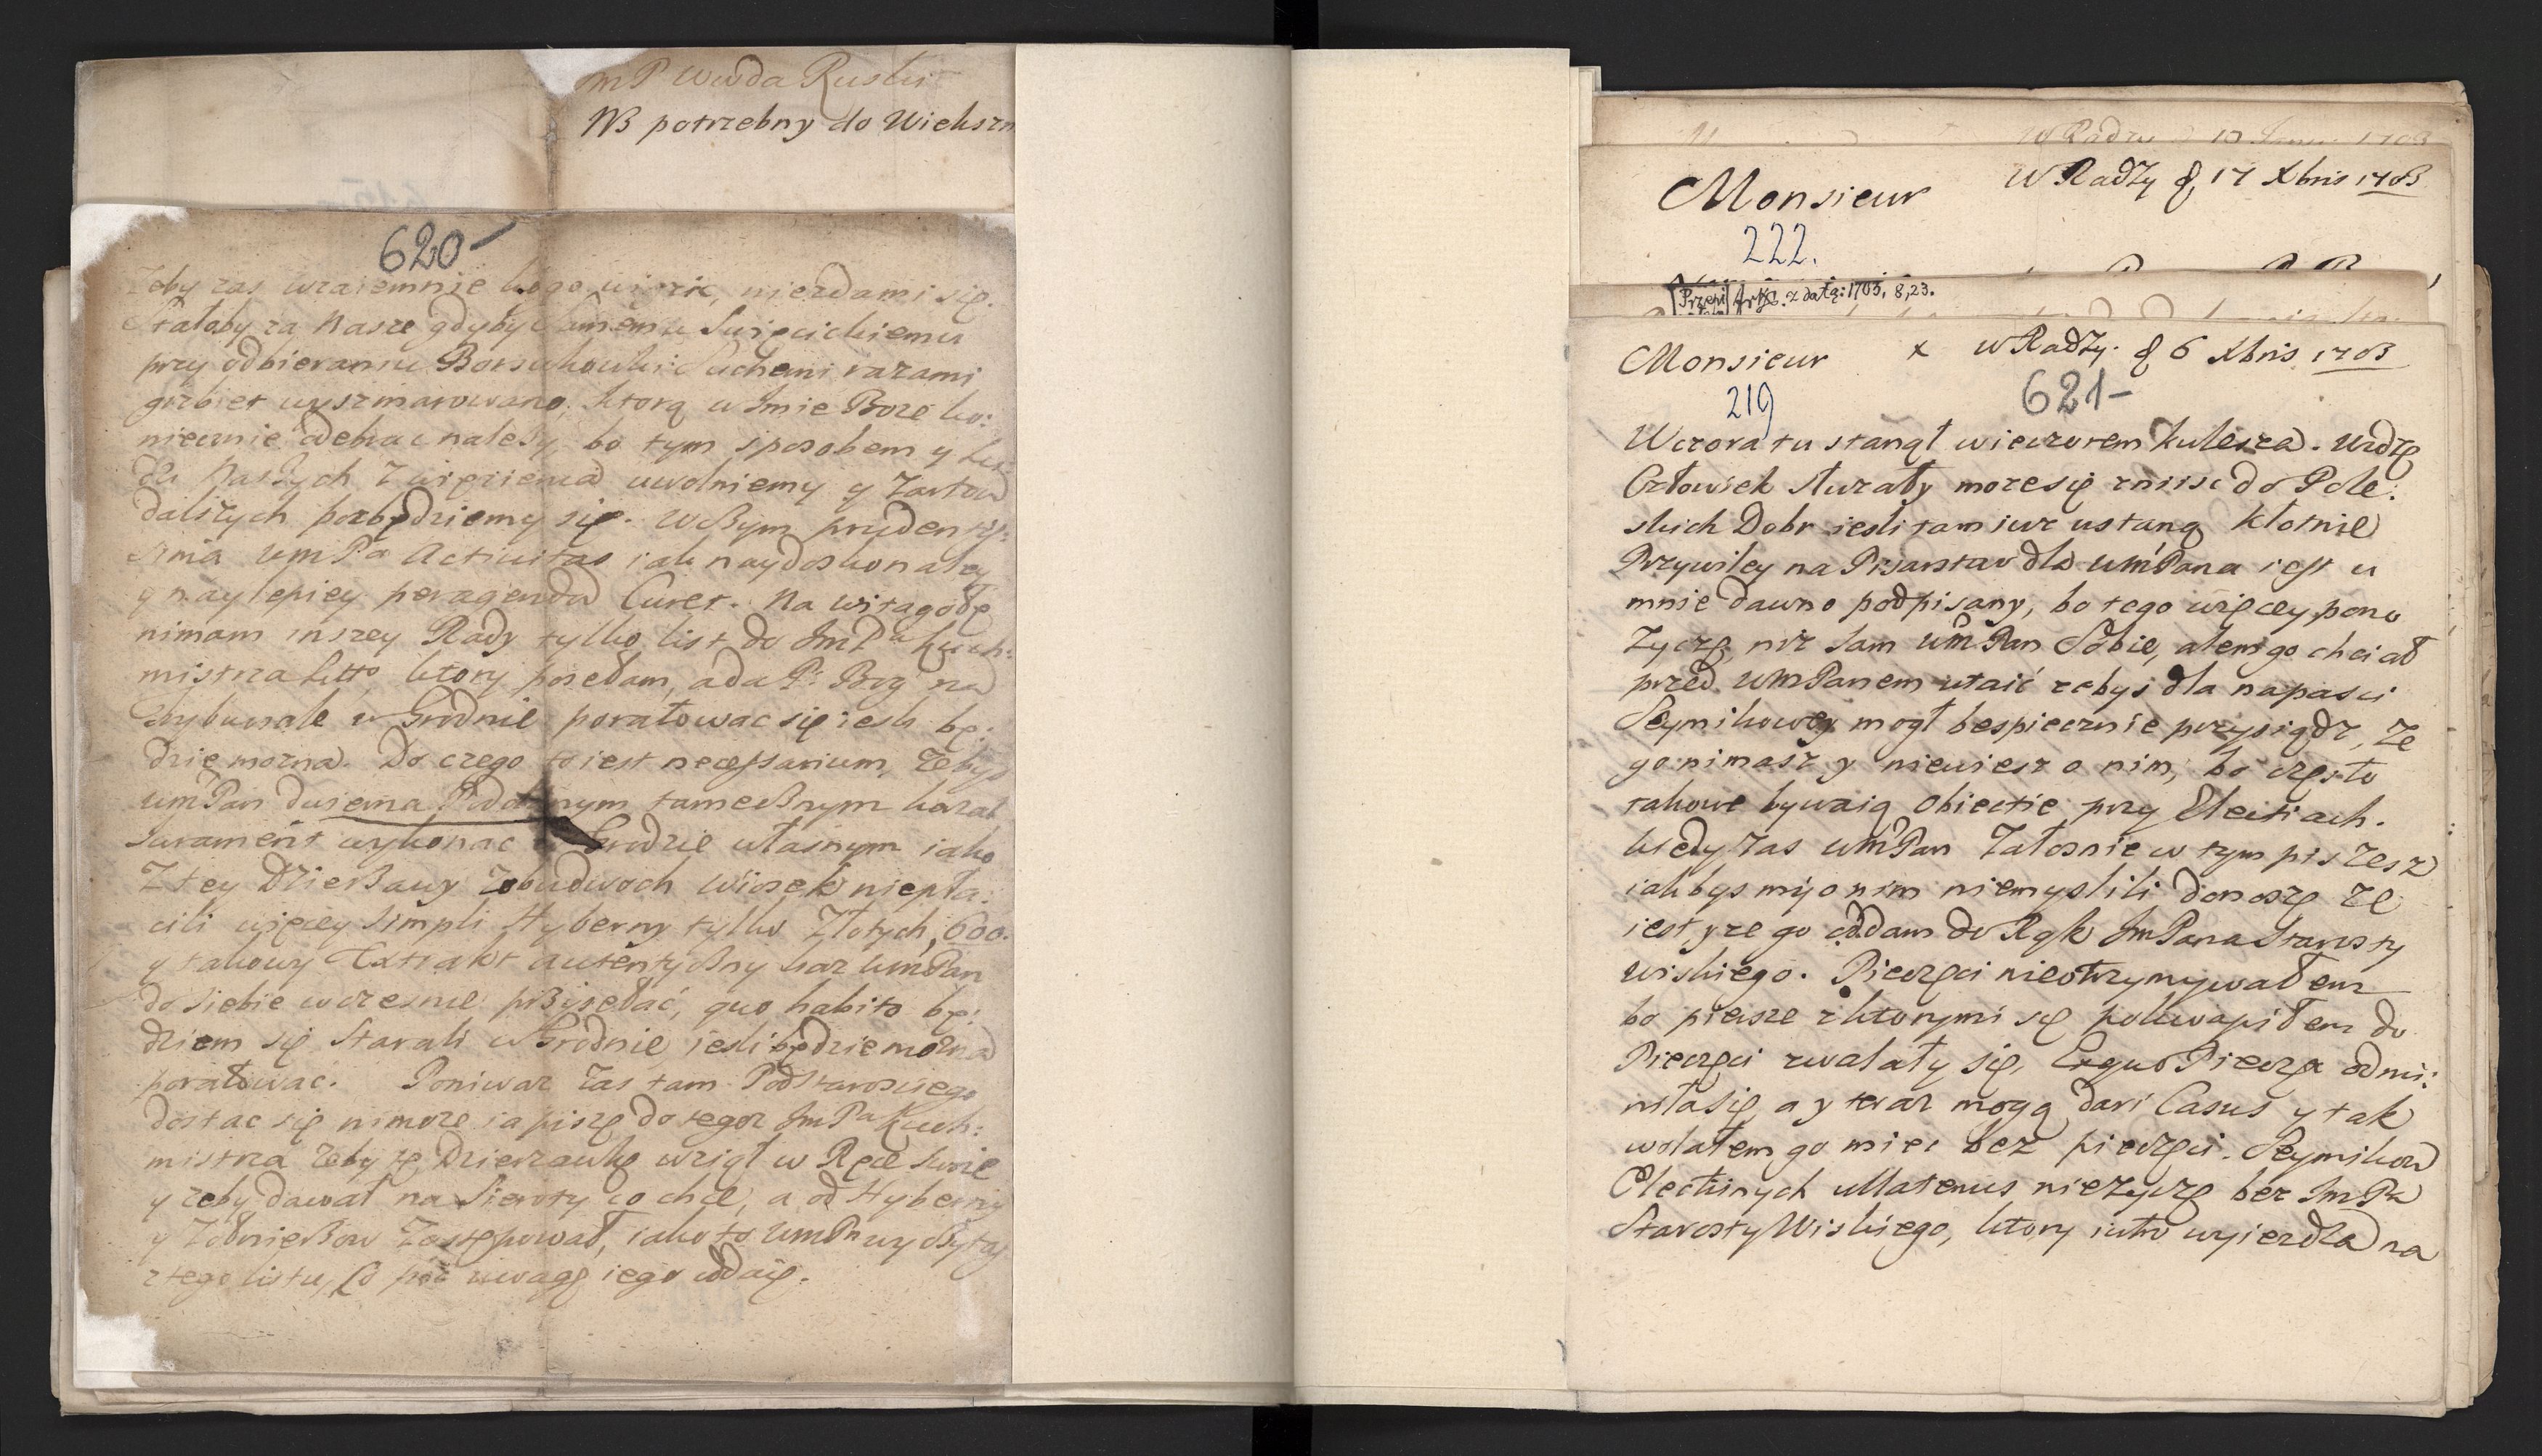 ImP Wwda Ruski
NB potrzebny do Wieksz
620
Zeby zas wzaiemnie kogo nierdami się.
Stałoby za Nasze gdyby Samemu Swięcickiemu
przy odbieraniu Borsukowki Suchemi razami
grzbiet wyszmarowano, ktorą w Imie Boze ko:
niecznie odebrac nalezy, bo tym sposobem y
Naszych z więzienia uwolniemy y Zartow
dalszych pozbędziemy się. W czym pruden
sima WmPa Activitas iak naydoskonaley
y naylepiey peragenda Curet. Na
nimam inszey Rady tylko list do ImPa Kuch:
mistrza Litto ktory posełam, a da P. Bog na
Trybunale w Grodnie poratowac się iesli bę:
dzie mozna. Do czego to iest necessarium, zebys
WmPan dwiema tamecznym kazał
Jurament wykonac w Grodzie własnym iako
Z tey Dzierzawy Zobudwoch Wiosek niepła:
cili więcey simpli Hyberny tylko Złotych 600.
y takowy Extrakt autentyczny kaz WmPan
do siebie wczesnie przysełać, quo habito bę:
dziem się starali w Grodnie iesli będzie mozna
poratować. Poniwaz zas tam Podstarosciego
dostac się nimoze ia piszę do tegoz ImPa Kuch:
mistrza Zeby tę Dzierzawkę wziął w Ręce swoie
y zeby dawał na Sieroty co chce, a od Hyberny
y Zołnierzow Zastępował, iako to WmPan wyczytasz
z tego listu, co pod uwagę iego oddaię.
W Radzy 1703
Monsieur W Radzy d 17 Xbris 1703
222.
z datą: 1703, 8, 23.
Monsieur x w Radzy. d 6 Xbris 1703
219 621
Wczora tu stanął wieczorem Kulesza. Widzę
Człowiek sturały moze się zniisc do Pole:
skich Dobr iesli tam iuz ustaną kłotnie
Przywiley na Pisarstwo dla WmPana iest u
mnie dawno podpisany, bo tego więcey pono
Zyczę, niz sam WmPan Sobie, alem go chciał
przed WmPanem utaić zebys dla napasci
Seymikowey mogł bespiecznie przysiądz, Ze
go nimasz y niewiesz o nim, bo często
takowe bywaią Obiectie przy Electiach.
kiedy zas WmPan Załosnie w tym piszesz
iakbysmy o nim niemyslili donoszę ze
iest y ze go oddam do Rąk ImPana Starosty
Wiskiego. Pieczęci nieotrzymywałem
bo piersze z ktorymi się pokwapiłem do
Pieczęci zwalały się, Ergo Pieczęc odmi:
niła się, a y teraz mogą dari Casus y tak
wolałem go miec bez pieczęci. Seymikow
Electinych ullatenus nieżyczę bez ImPa
Starosty Wiskiego, ktory iutro wyiezdza na